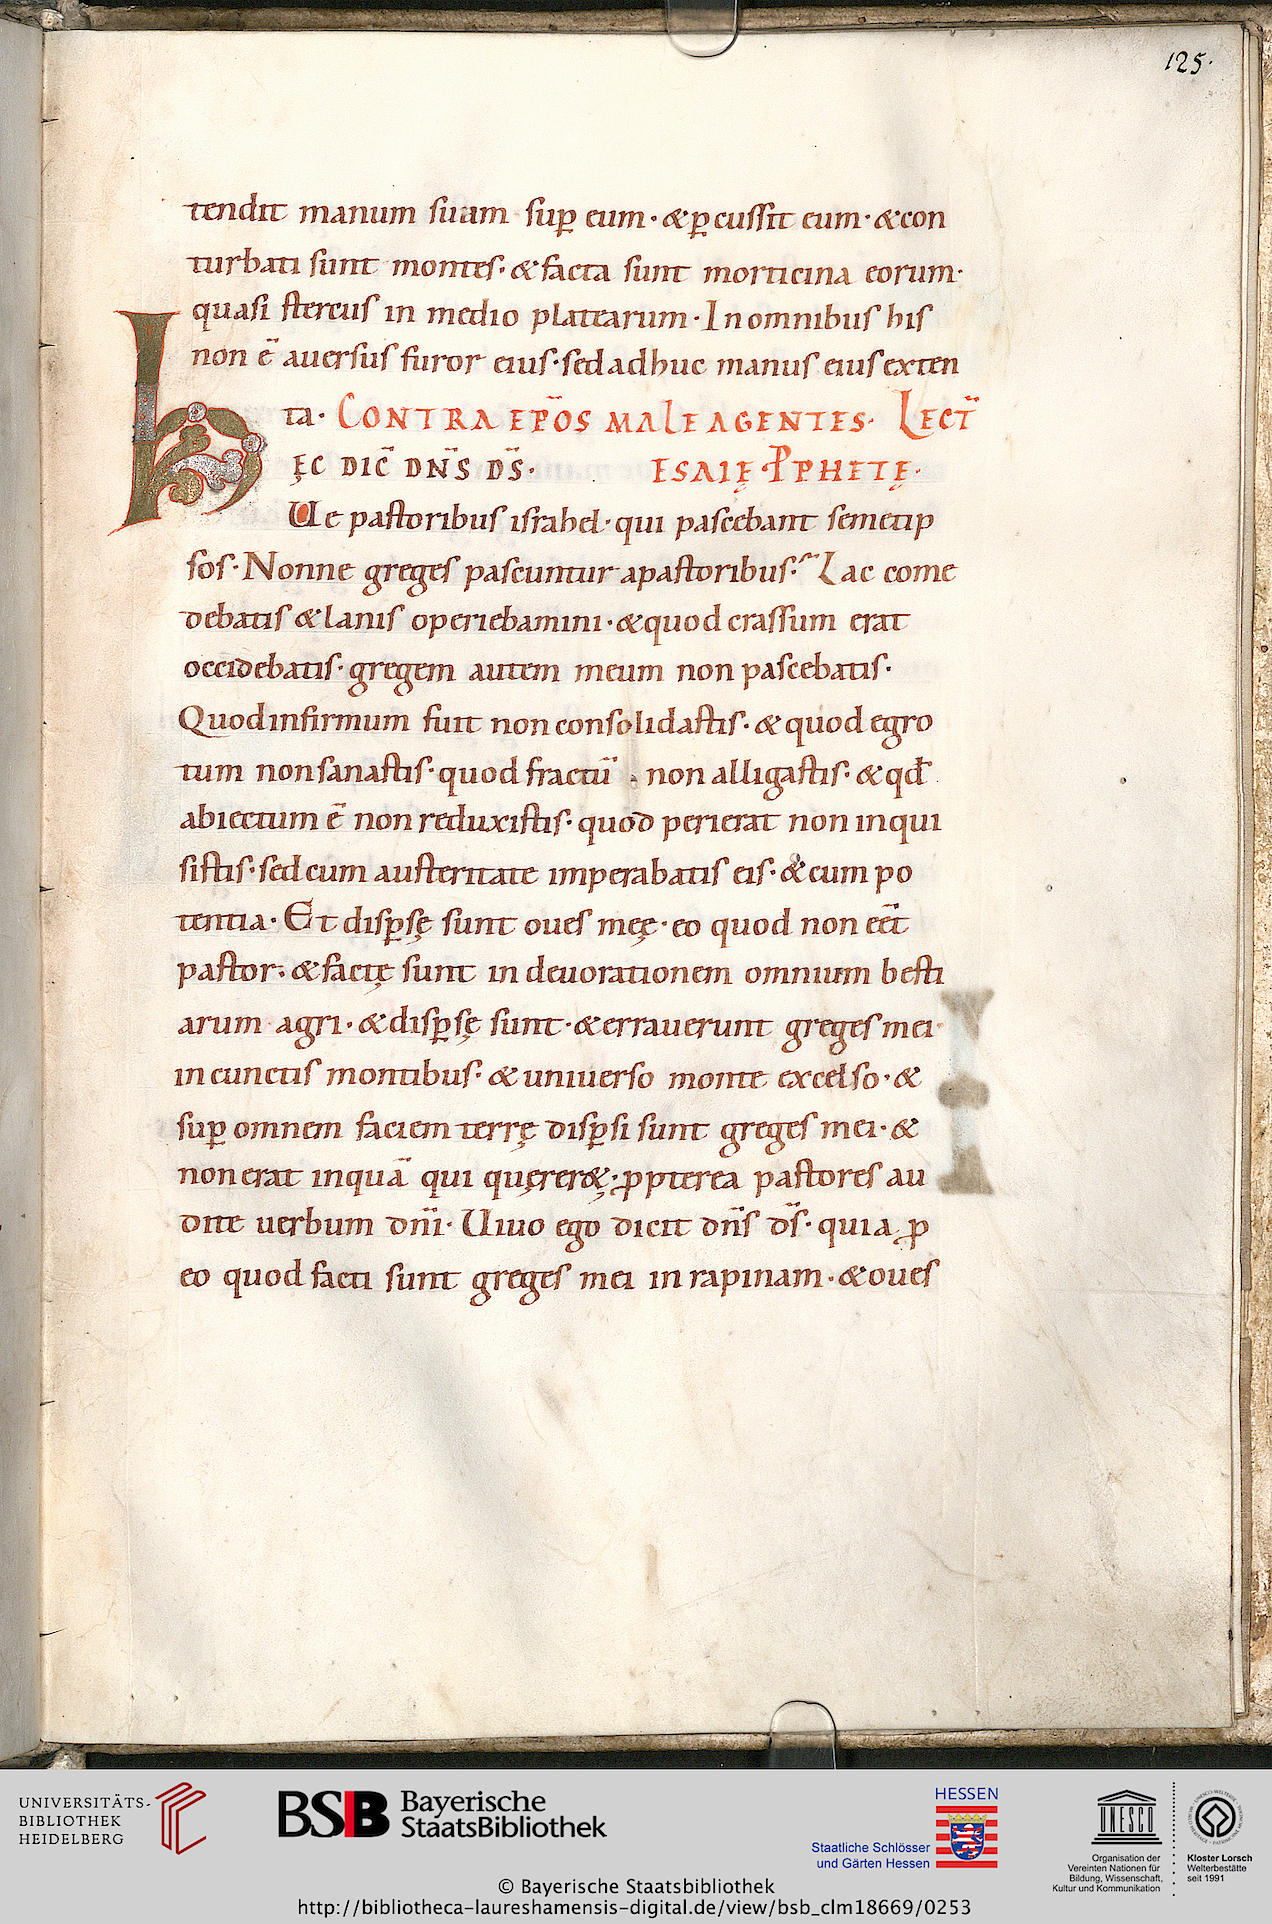 125.
tendit manum suam sup̱ eum· &p̱cussit eum· &con
turbati sunt montes· &facta sunt morticina eorum·
quasi stercus in medio platearum· In omnibus his
non ē auersus furor eius· sed adhuc manus eius exten
ta· CONTRA EP̄OS MALE AGENTES· LECT̄
HĘC DIC̄ DN̄S DS̄· ESAIĘ PꝓHETĘ·
Ue pastoribus israhel· qui pascebant semetip
sos· Nonne greges pascuntur apastoribus? Lac come
debatis &lanis operiebamini· &quod crassum erat
occidebatis· gregem autem meum non pascebatis·
Quod infirmum fuit non consolidastis· & quod egro
tum non sanastis· quod fractū · non alligastis· & qd̄
abiectum ē non reduxistis· quod perierat non inqui
sistis· sed cum austeritate imperabatis eis· & cum po
tentia· Et disp̱sę sunt oues meę· eo quod non eēt
pastor· & factę sunt in deuorationem omnium besti
arum agri· &disp̱sę sunt· &errauerunt greges mei·
in cunctis montibus· & uniuerso monte excelso· &
sup̱ omnem faciem terrę disp̱si sunt greges mei· &
non erat inquā qui quęrer&· ꝓpterea pastores au
dite uerbum dnī· Uiuo ego dicit dn̄s ds̄· quia ꝓ
eo quod facti sunt greges mei in rapinam· &oues
UNIVERSITÄTS-
BIBLIOTHEK
HEIDELBERG
BSB Bayerische
StaatsBibliothek
HESSEN
Staatliche Schlösser
und Gärten Hessen
UNESCO
Organisation der
Vereinten Nationen für
Bildung, Wissenschaft,
Kultur und Kommunikation
Kloster Lorsch
Welterbestätte
seit 1991
© Bayerische Staatsbibliothek
http://bibliotheca-laureshamensis-digital.de/view/bsb_clm18669/0253